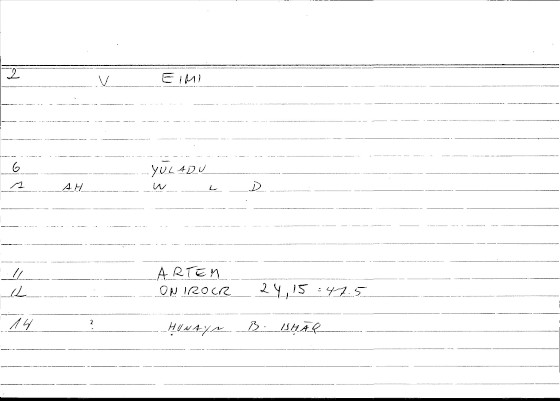 2 V EIMI
6 YŪLADU
1 AH W L D
11 ARTEM
12 ONIROCR 24,15 : 47.5
14 ? ḤUNAYN B. ISḤĀQ